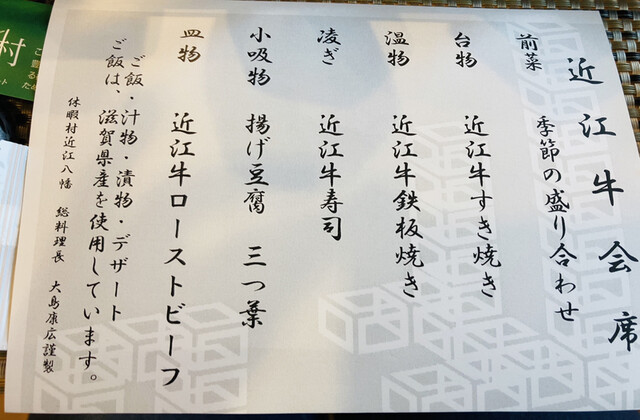 近江牛会席
前菜 季節の盛り合わせ
台物 近江牛すき焼き
温物 近江牛鉄板焼き
凌ぎ 近江牛寿司
小吸物 揚げ豆腐 三つ葉
皿物 近江牛ローストビーフ
ご飯・汁物・漬物・デザート
ご飯は、滋賀県産を使用しています。
休暇村近江八幡 総料理長 大島康広謹製
村